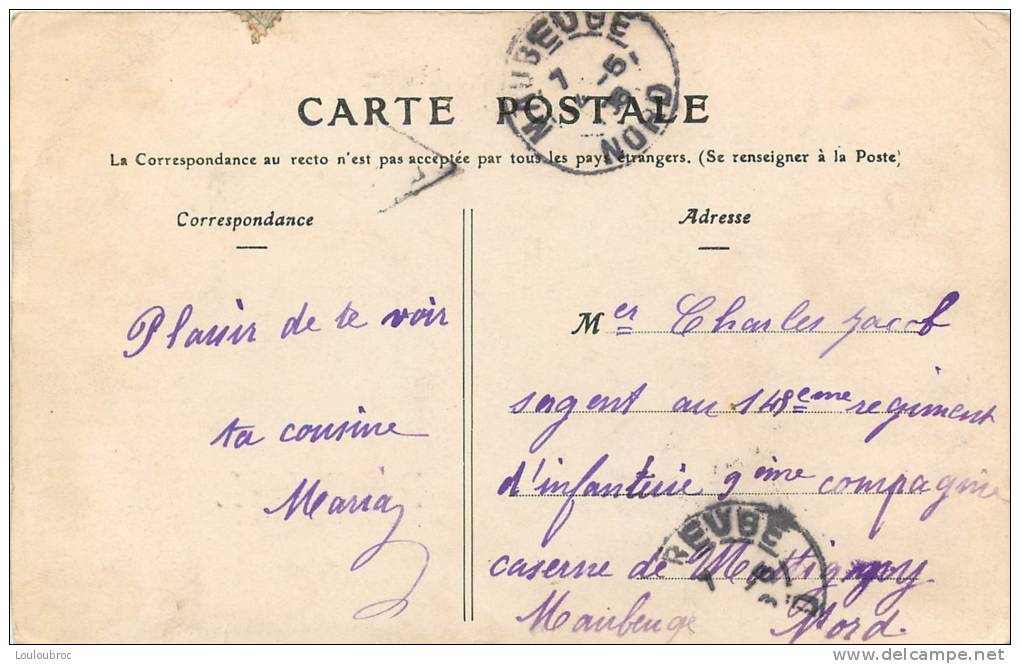 MAUBEUGE
7
5
NORD
CARTE POSTALE
La Correspondance au recto n'est pas acceptée par tous les pays étrangers. (Se renseigner à la Poste)
Correspondance
Plaisir de te voir
ta cousine
Maria
Adresse
Mer Charles Jacob
sergent au 148eme regiment
d'infanterie 9eme compagnie
caserne de
Maubeuge Nord
© DELCAMPE.NET
Louloubroc